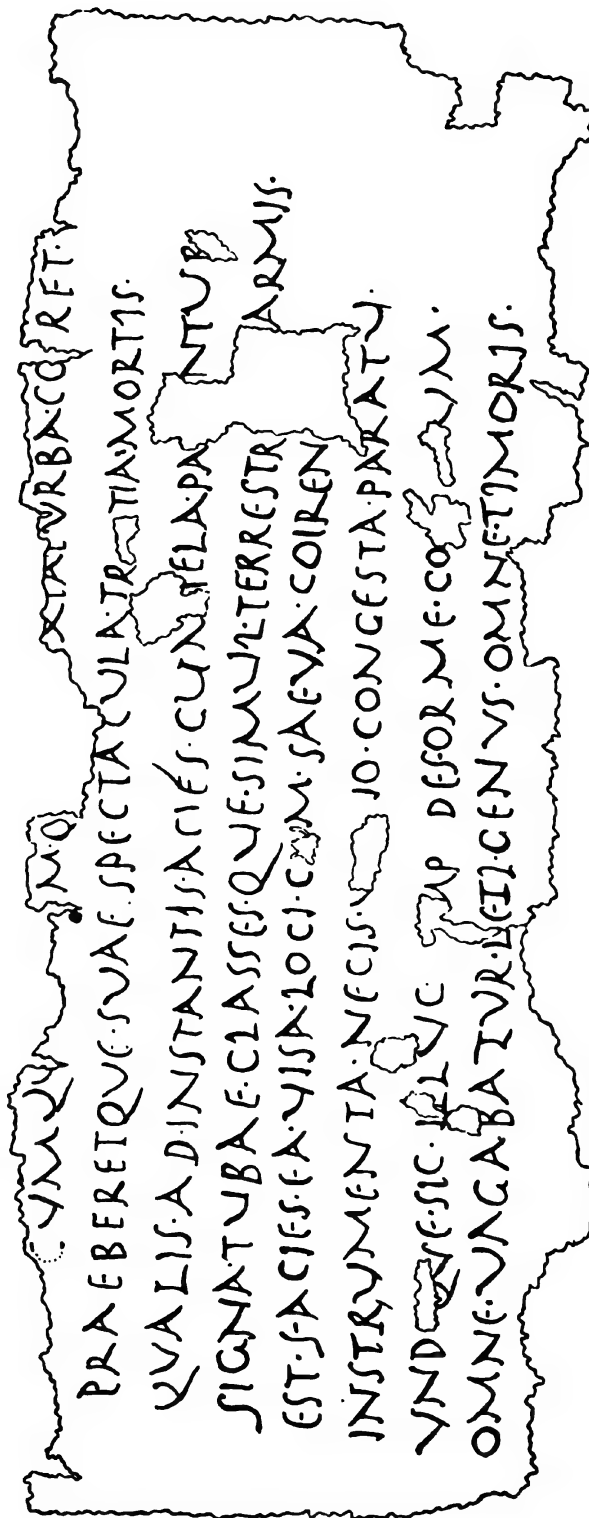 UMQU M·Q XIA·TURBA·CO RET·
PRAEBERETQUE·SUAE·SPECTACULA·TR TIA·MORTIS·
QUALIS·AD·INSTANTIS·ACIÉS·CUM TELA·PA NTUR
SIGNA·TUBAE·CLASSESQUE·SIMUL·TERRESTR ARMIS·
EST·FACIES·EA·VISA·LOCI·C M·SAEVA·COIREN
INSTRUMENTA·NECIS·V IO·CONGESTA·PARATU·
UND QUE·SIC·ILLUC· MP DEFORME·CO UM·
OMNE·VAGABATUR·LETI·GENUS·OMNE·TIMORIS·